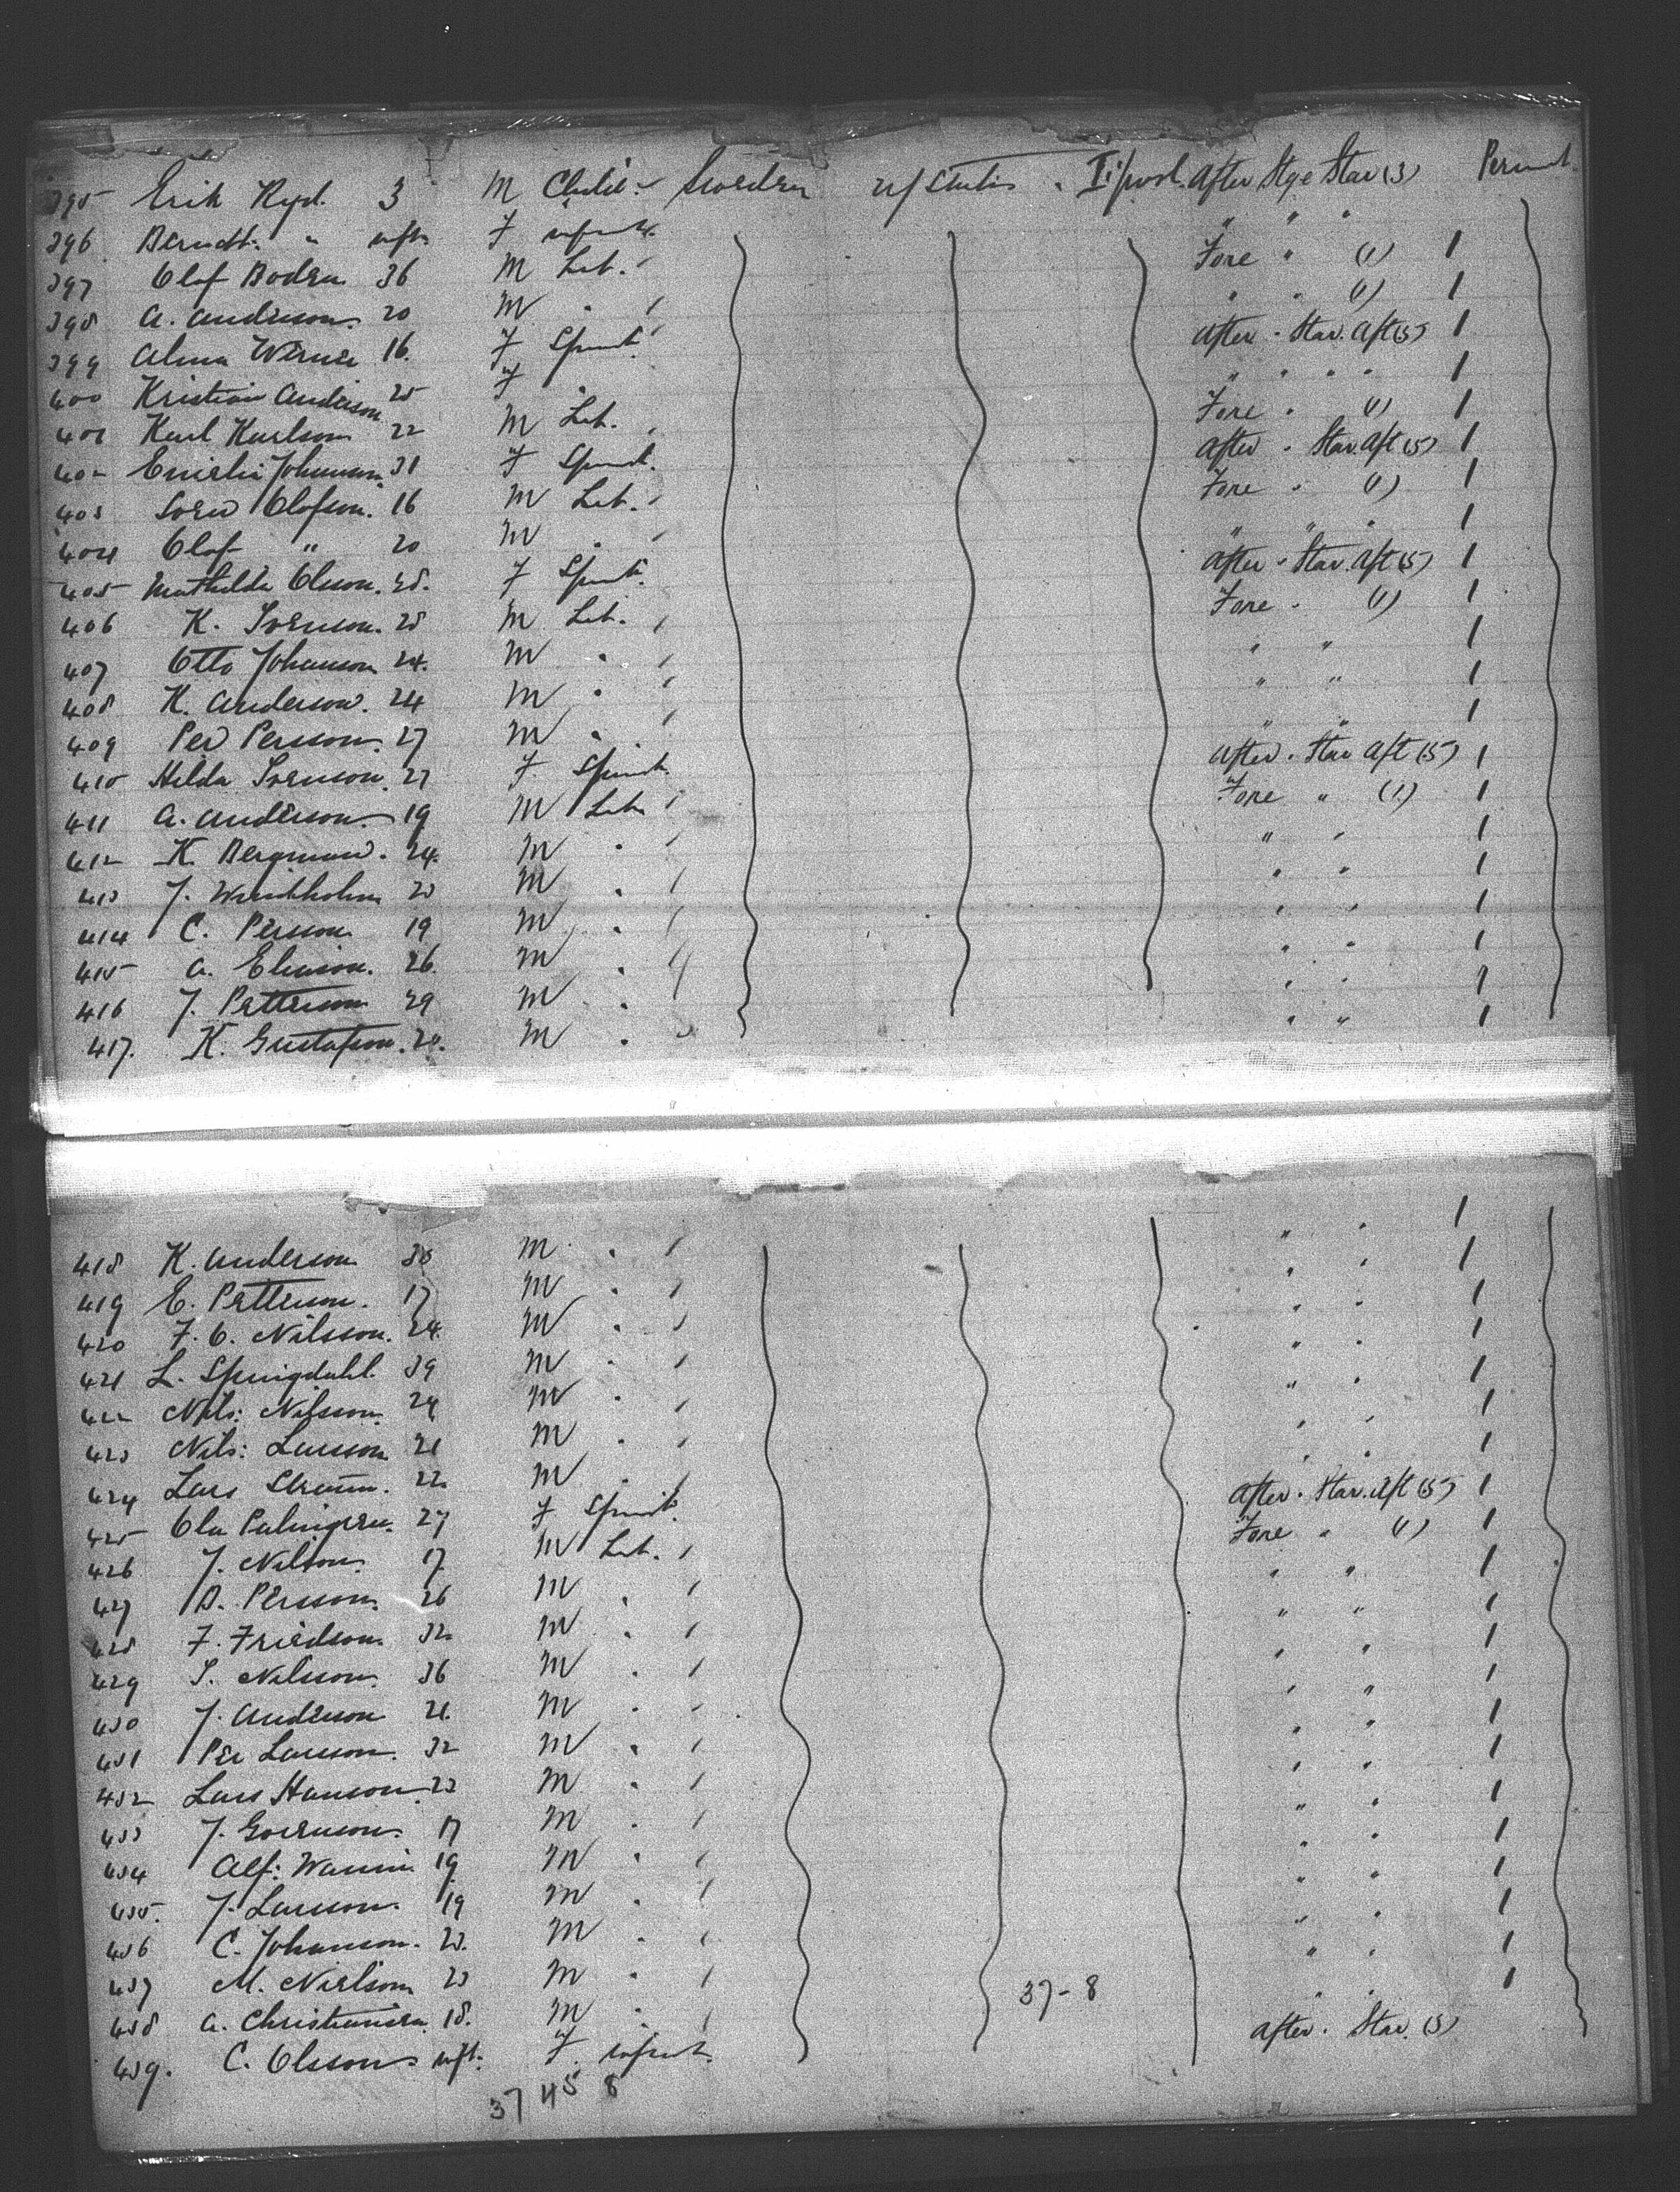 395 Erik Ryd. 3 M Child Sweden U/States After Stge Star (3)
396 Berndt " inft. F infant " " "
397 Olof Boden 36 M Lab. Fore " (1) 1
398 A. Anderson. 20 M " " " (1) 1
399 Alma 16. F Spinst. After " Star. Aft (5) 1
400 Kristin Anderson 25 F " " " " " 1
401 Karl Karlson 22 M Lab. Fore " (1) 1
402 Emelie Johanson. 31 F Spinst. After " Star. Aft (5) 1
403 Sven Olofson. 16 M Lab. Fore " (1) 1
404 Olof " 20 M " " " " 1
405 Mathilda Olsson. 28. F Spinst. After " Star. Aft (5) 1
406 K. Svenson. 28 M Lab. Fore " (1) 1
407 Otto Johanson 24. M " " " 1
408 K. Anderson. 24 M " " " 1
409 Per Persson. 27 M " " " 1
410 Hilda Svenson. 27 F Spinst. After " Star Aft (5) 1
411 A. Anderson. 19 M Lab Fore " (1.) 1
412 K. Bergman. 24. M " " " 1
413 J. 23 M " " " 1
414 C. Persson 19 M " " " 1
415 A. Eliason. 26. M " " " 1
416 J. Petterson 29 M " " " 1
417. K. Gustafson. 20. M " " " 1
418 K. Anderson 38 M " " " 1
419 E. Petterson. 17 M " " " 1
420 F. O. Nilsson. 24. M " " " 1
421 L. Springdahl. 39 M " " " 1
422 Nils: Nilsson. 24 M " " " 1
423 Nils: Larsson 21 M " " " 1
424 Lars 22 M " " " 1
425 Ola Palmgren. 27 F Spinst. After " Star. Aft (5) 1
426 J. Nilson. 17 M Lab. Fore " (1) 1
427 B. Persson. 26 M " " " 1
428 F. Friedson. 32 M " " " 1
429 S. Nilsson. 36 M " " " 1
430 J. Anderson 21. M " " " 1
431 Per Larsson. 32 M " " " 1
432 Lars Hanson 23 M " " " 1
433 J. 17 M " " " 1
434 Alf: 19 M " " " 1
435. J. Larsson. 19 M " " " 1
436 C. Johanson. 23. M " " " 1
437 M. Nielson 23 M " " " 1
438 A. Christiansen. 18. M " " " 1
37-8
439. C. Olsson inft. F infant. After " Star. (3)
37 45 8